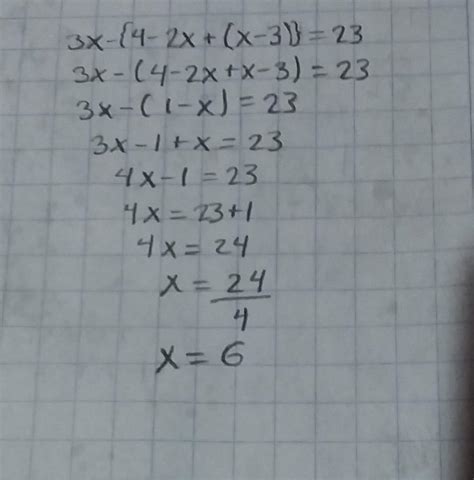 3x-{4-2x+(x-3)} = 23
3x-(4-2x+x-3) = 23
3x-(1-x) = 23
3x-1+x = 23
4x-1 = 23
4x = 23+1
4x = 24
x = 24/4
x = 6